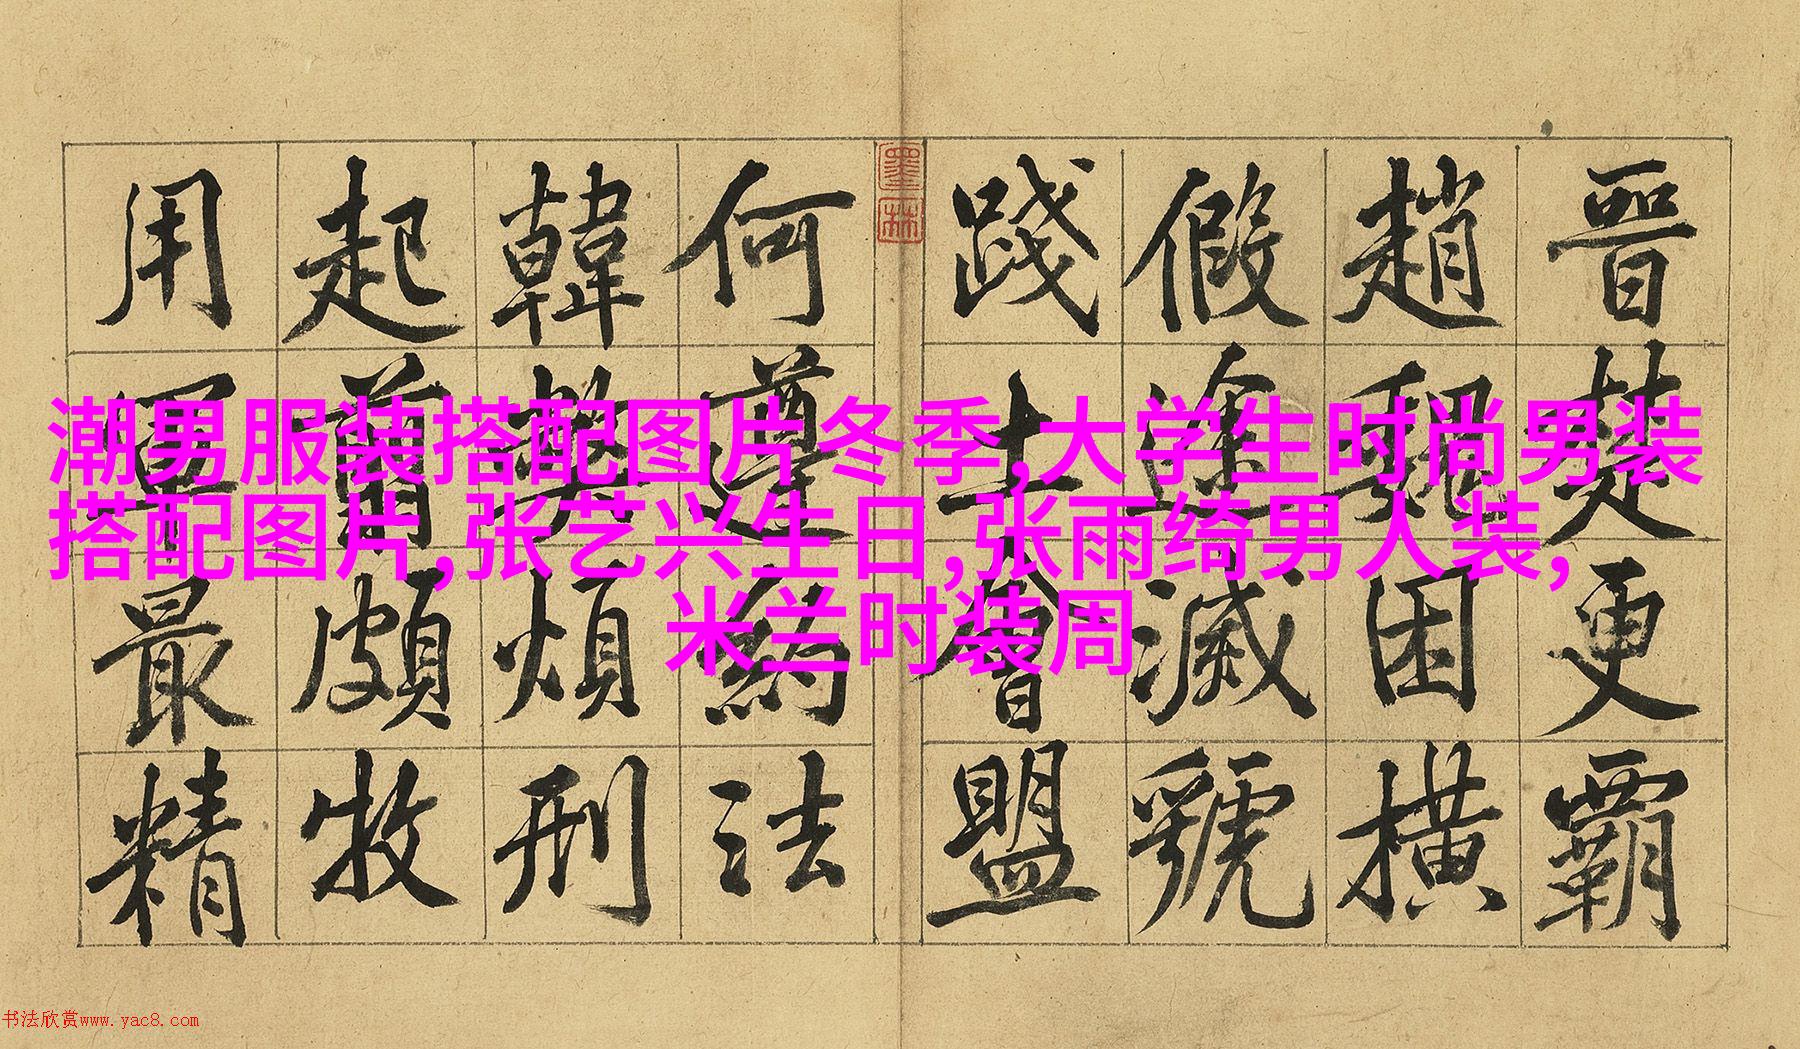 晉楚更霸
趙魏困橫
假途滅虢
踐土會盟
墨林
何遵約法
韓弊煩刑
起翦頗牧
用軍最精
潮男服装搭配图片冬季,大学生时尚男装
搭配图片,张艺兴生日,张雨绮男人装,
米兰时装周
书法欣赏www.yac8.com